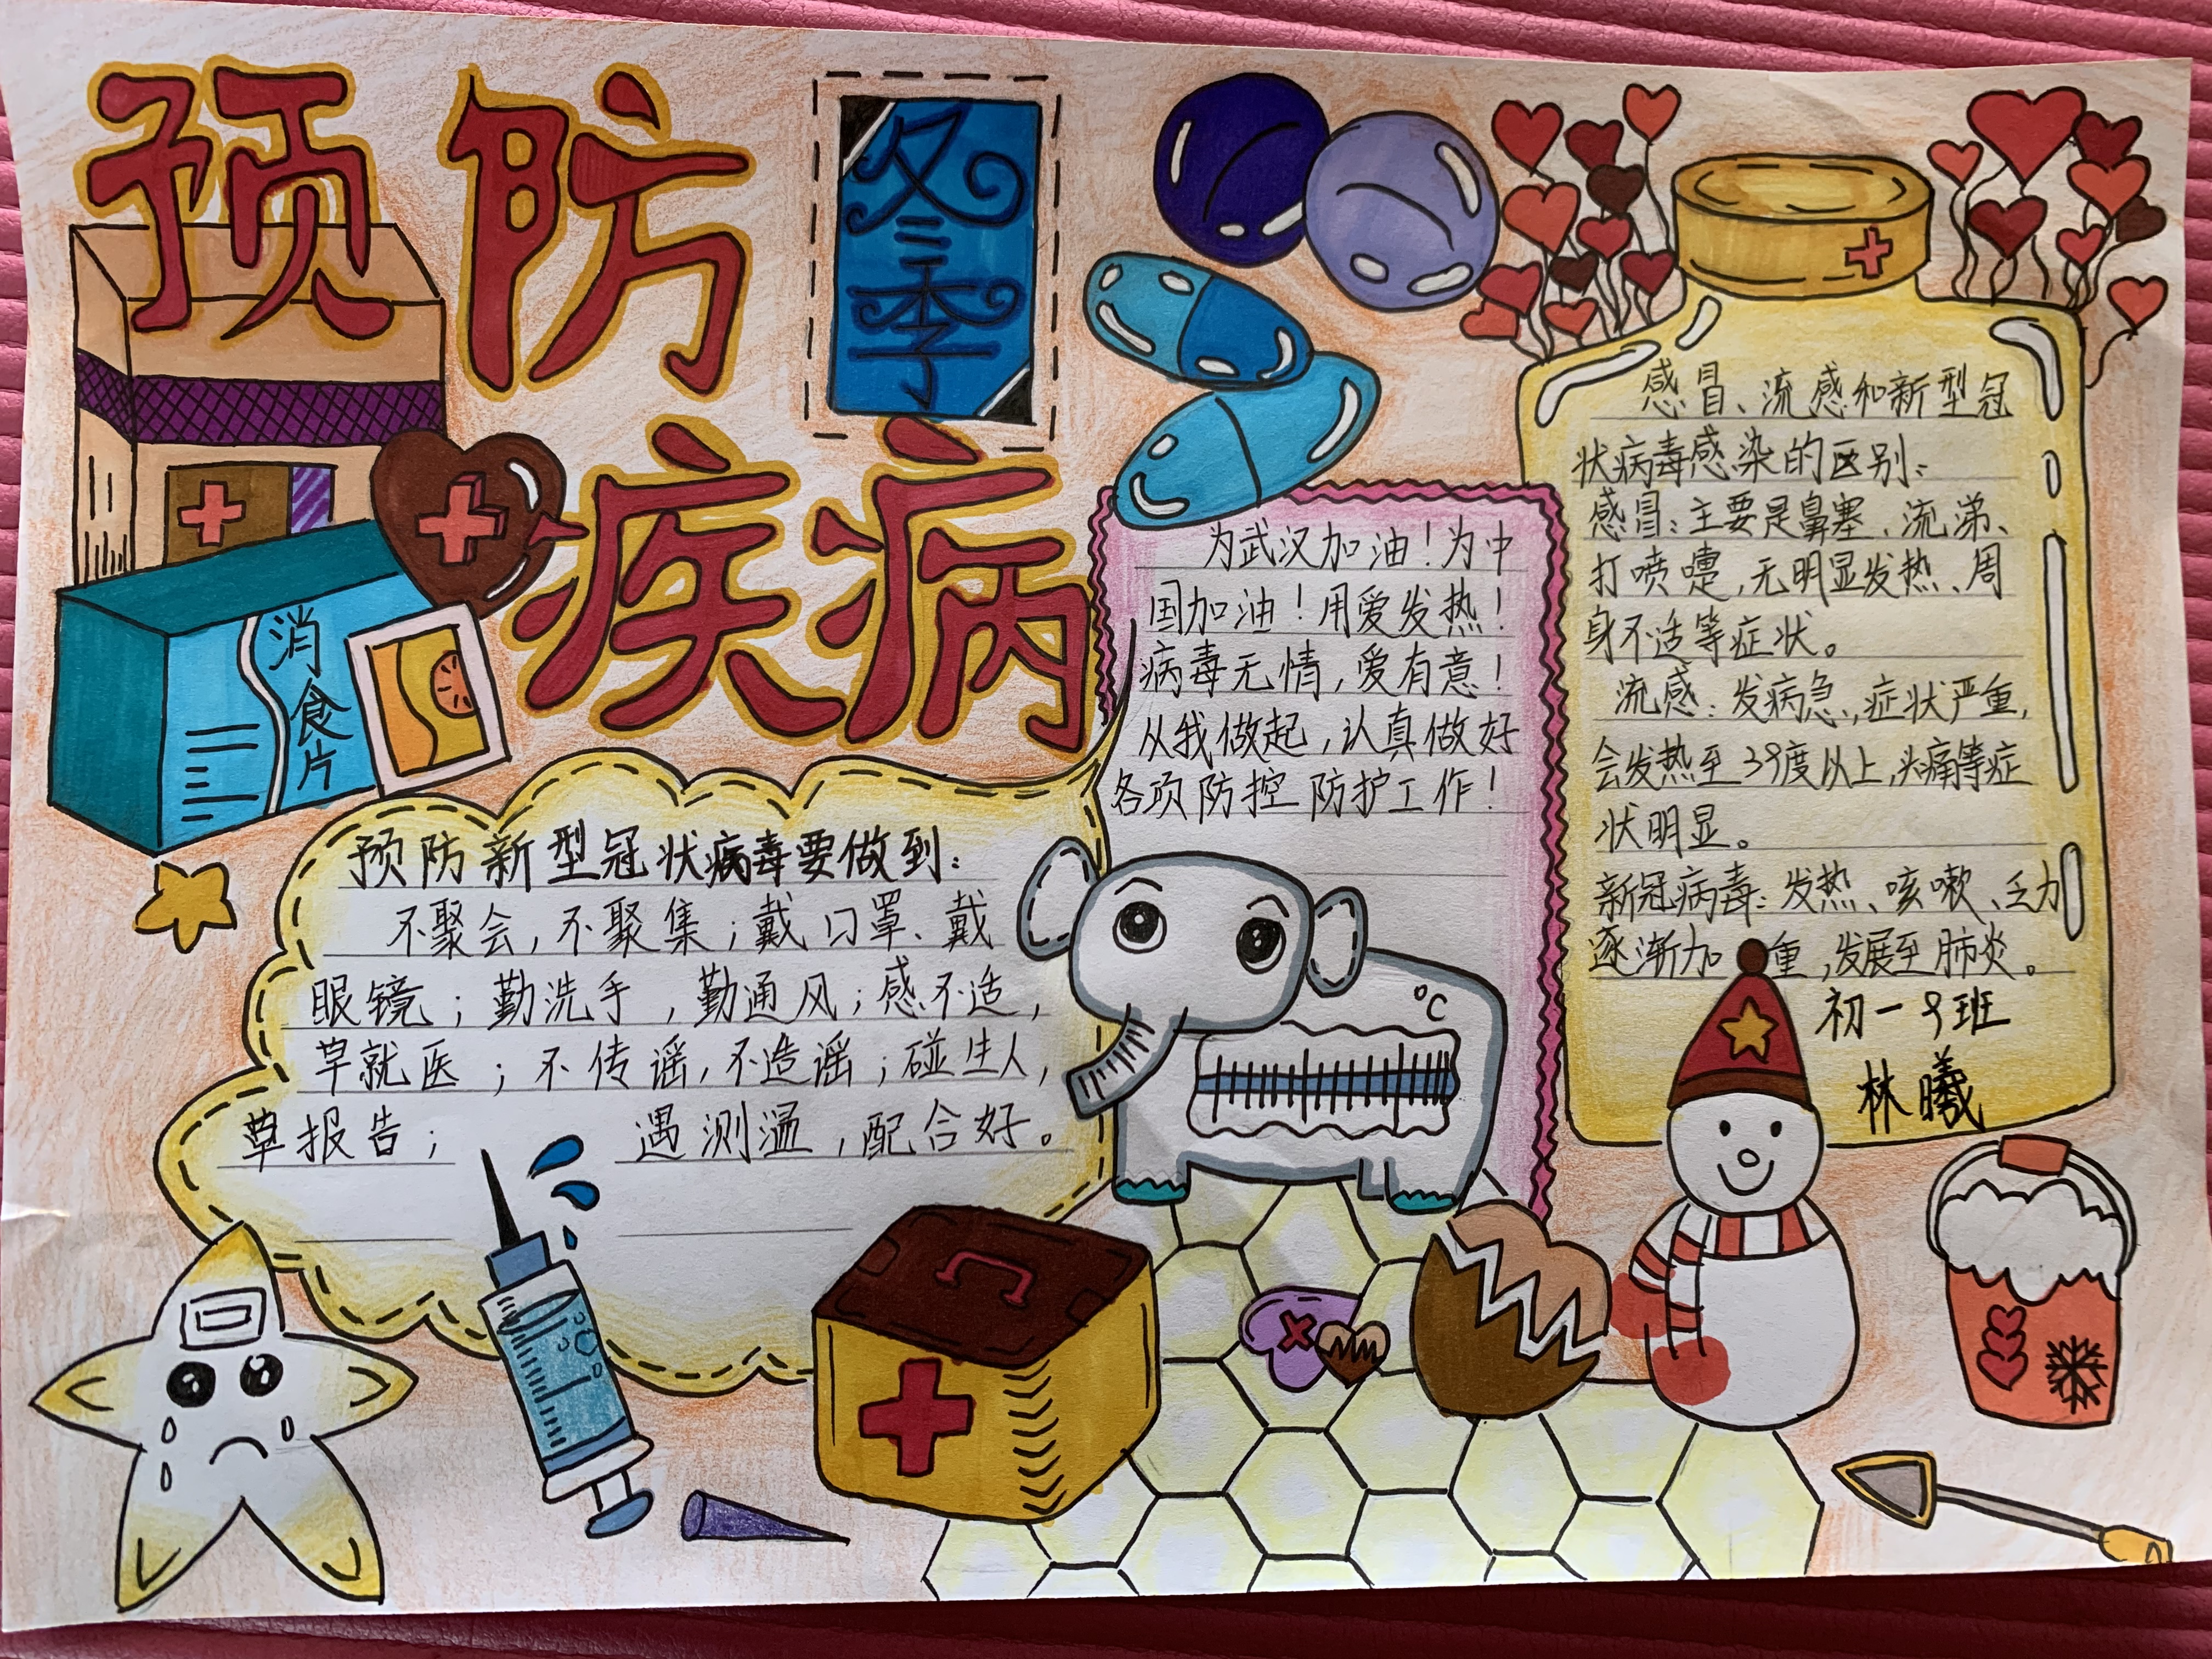 预防
冬季
疾病
消食片
为武汉加油！为中
国加油！用爱发热！
病毒无情，爱有意！
从我做起，认真做好
各项防控防护工作！
感冒、流感和新型冠
状病毒感染的区别：
感冒：主要是鼻塞、流涕、
打喷嚏，无明显发热、周
身不适等症状。
流感：发病急，症状严重，
会发热至39度以上，头痛等症
状明显。
新冠病毒：发热、咳嗽、乏力
逐渐加重，发展至肺炎。
初一9班
林曦
预防新型冠状病毒要做到：
不聚会，不聚集；戴口罩、戴
眼镜；勤洗手，勤通风；感不适，
早就医；不传谣，不造谣；碰生人，
草报告；遇测温，配合好。
°C